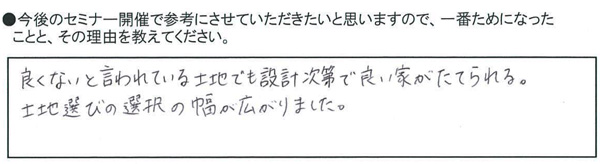 ●今後のセミナー開催で参考にさせていただきたいと思いますので、一番ためになった
ことと、その理由を教えてください。
良くないと言われている土地でも設計次第で良い家がたてられる。
土地選びの選択の幅が広がりました。